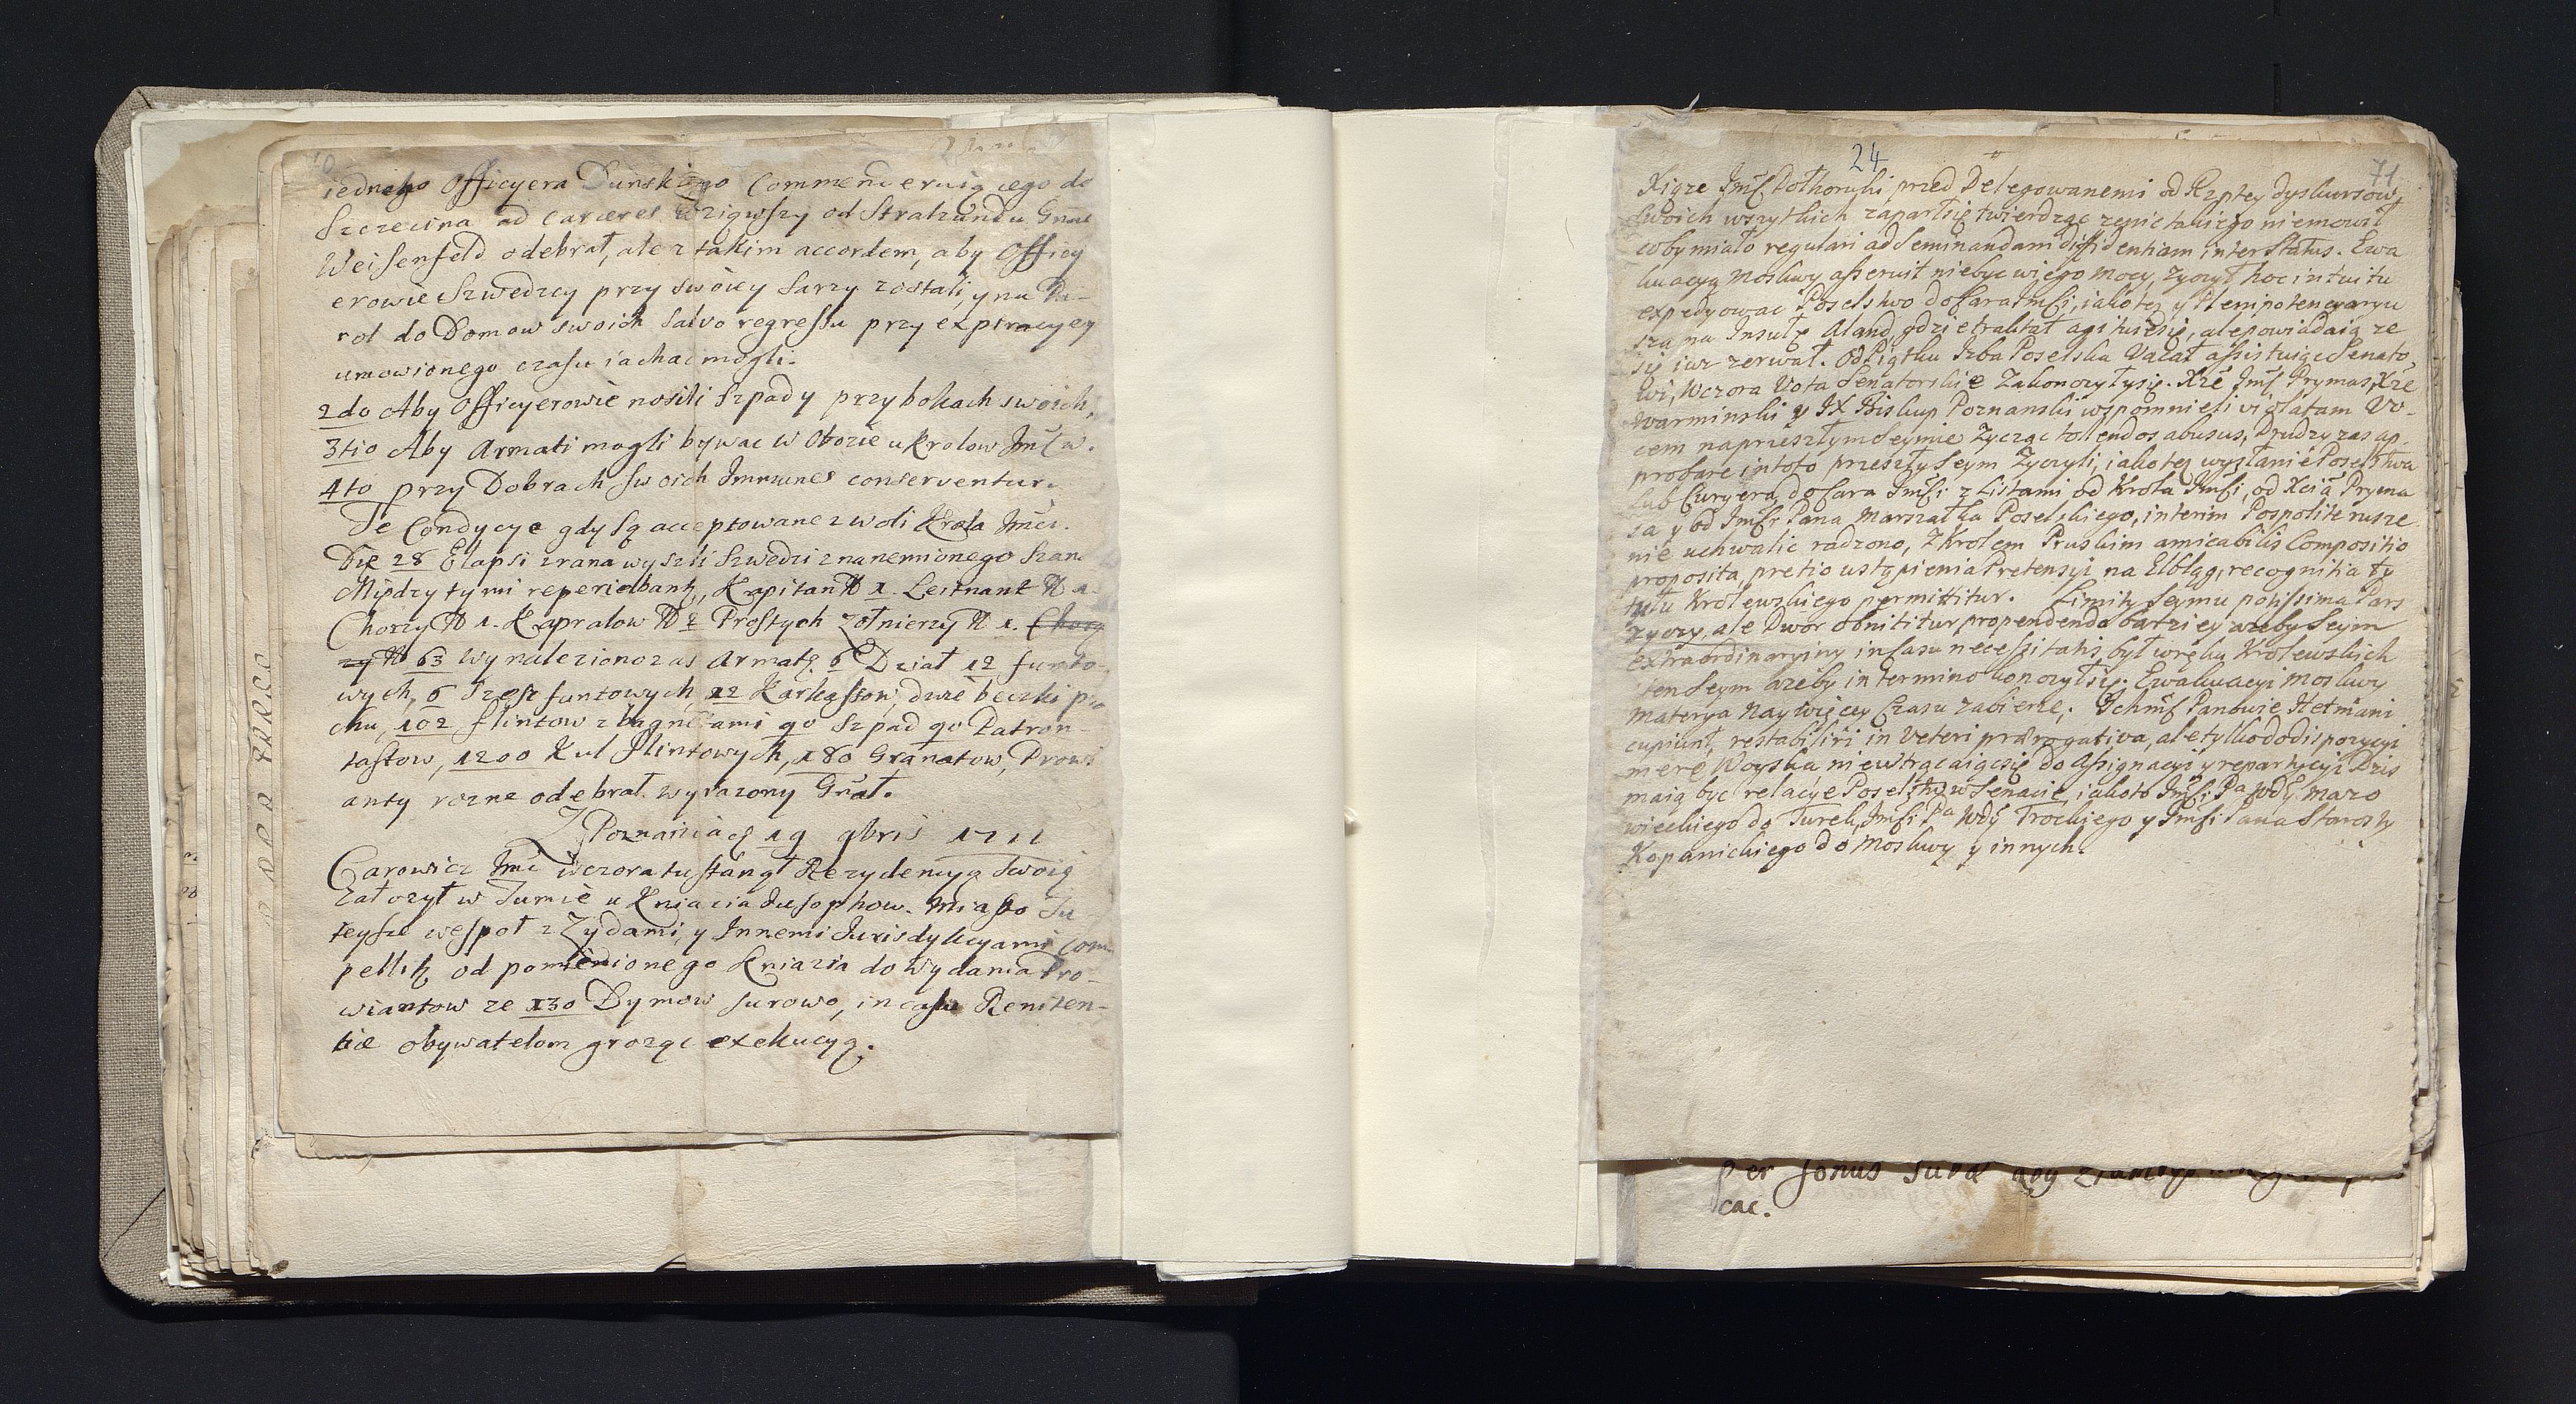 iednego Officyera Dunskiego Commenderuiącego do
Szczecina ad carceres wziąwszy od Stralzundu Gnał
Weisenfeld odebrał, ale z takim accordem, aby Officy
erowie Szwedzcy przy swoiey Sarzy zostali, y na Pa-
rol do Domow swoich salvo regressu przy expiracyey
umowionego czasu iachac mogli.
2do Aby Officyerowie nosili Szpady przy bokach swoich,
3tio Aby Armati mogli bywac w Obozie u Krolow Jmcw.
4to przy Dobrach swoich Immunes conserventur.
Te Condycye gdy są acceptowane z woli Krola Jmci.
Die 28 Elapsi z rana wyszli Szwedzi z nanemionego Szan
Między tymi reperiebantz, Kapitan N 1. Leitnant N 1.
Chorzy N 1. Kapralow N 2 Prostych Żołnierzy N 1. Chorą
zy N 63 wynaleziono zas Armatę 6 Dział 12 funto-
wych, 6 szesc funtowych, 22 Karkassow, dwie beczki pro
chu, 102 flintow z bagnetami 90 Szpad 90 Patron-
tastow, 1200 Kul flintowych, 180 Granatow, Prowi
anty rozne odebrał wyrazony Gnał.
Z Poznania d 19 9bris 1711
Carowicz Jmć wczora tu stanął Rezydencyą swoią
Załozył w Tumie u Kniazia Jusophow. Miasto Tu
teysze wespoł z Zydami, y Innemi Jurisdykcyami Com
pellitz od pomienionego Kniazia do wydania Pro-
wiantow ze 130 Dymow surowo, in casu Reniten-
tiæ obywatelom groząc exekucyą.
24
71
Xiąze Jmść Dołhoruki przed Delegowanemi od Rzptey dyskursow
swoich wszytkich zaparł się twierdząc ze nic takiego niemowił
coby miało regulari ad seminandam diffidentiam inter Status. Ewa
kuacyą Moskwy asseruit niebyc w iego mocy, zyczył hoc intuitu
expedyowac Poselstwo do Cara Jmści, iako tez y Plenipotencyaryu
sza na Insulę Aland, gdzie traktat agituie się, ale powiadaią ze
się iuz zerwał. Od Piątku Izba Poselska Vacat assistuiąc Senato,
wi, Wczora Vota Senatorskie Zakonczyły się. Xże Jmść Prymas, Xże
Warminski y JX Biskup Poznanski wspomnieli violatam Vo-
cem na przeszłym Seymie zycząc tollendos abusus, Drudzy zas ap-
probare in toto przeszły Seym zyczyli, iako tez wysłanie Poselstwa
lub Curyera do Cara Jmści z Listami od Krola Jmści, od Xcia Pryma
sa y od Jmści Pana Marszałka Poselskiego, interim Pospolite rusze
nie uchwalic radzono, Z Krolem Pruskim amicabilis Compositio
proposita, pretio ustąpienia Pretensyi na Elbląg, recognitia ty
tułu Krolewskiego permittitur. Limity Seymu potissima Pars
zyczy, ale Dwor obnititur propendendo bardziey azeby Seym
extraordinaryiny in casu necessitatis był w ręku Krolewskich
ten Seym azeby in termino konczył się. Ewakuacyi Moskwy
materya naywięcey Czasu zabierze, Ichmść Panowie Hetmani
cupiunt, restabiliri in veteri prærogativa, ale tylko do dispozycyi
mere Woyska niewtrącaiąc się do Assignacyi y repartycyi Dzis
maią byc relacye Poselstw w Senacie, iako to Jmści Pa Wdy Mazo
wieckiego do Turek, Jmści Pa Wdy Trockiego y Jmści Pana Starosty
Kopanickiego do Moskwy y innych.
cac.